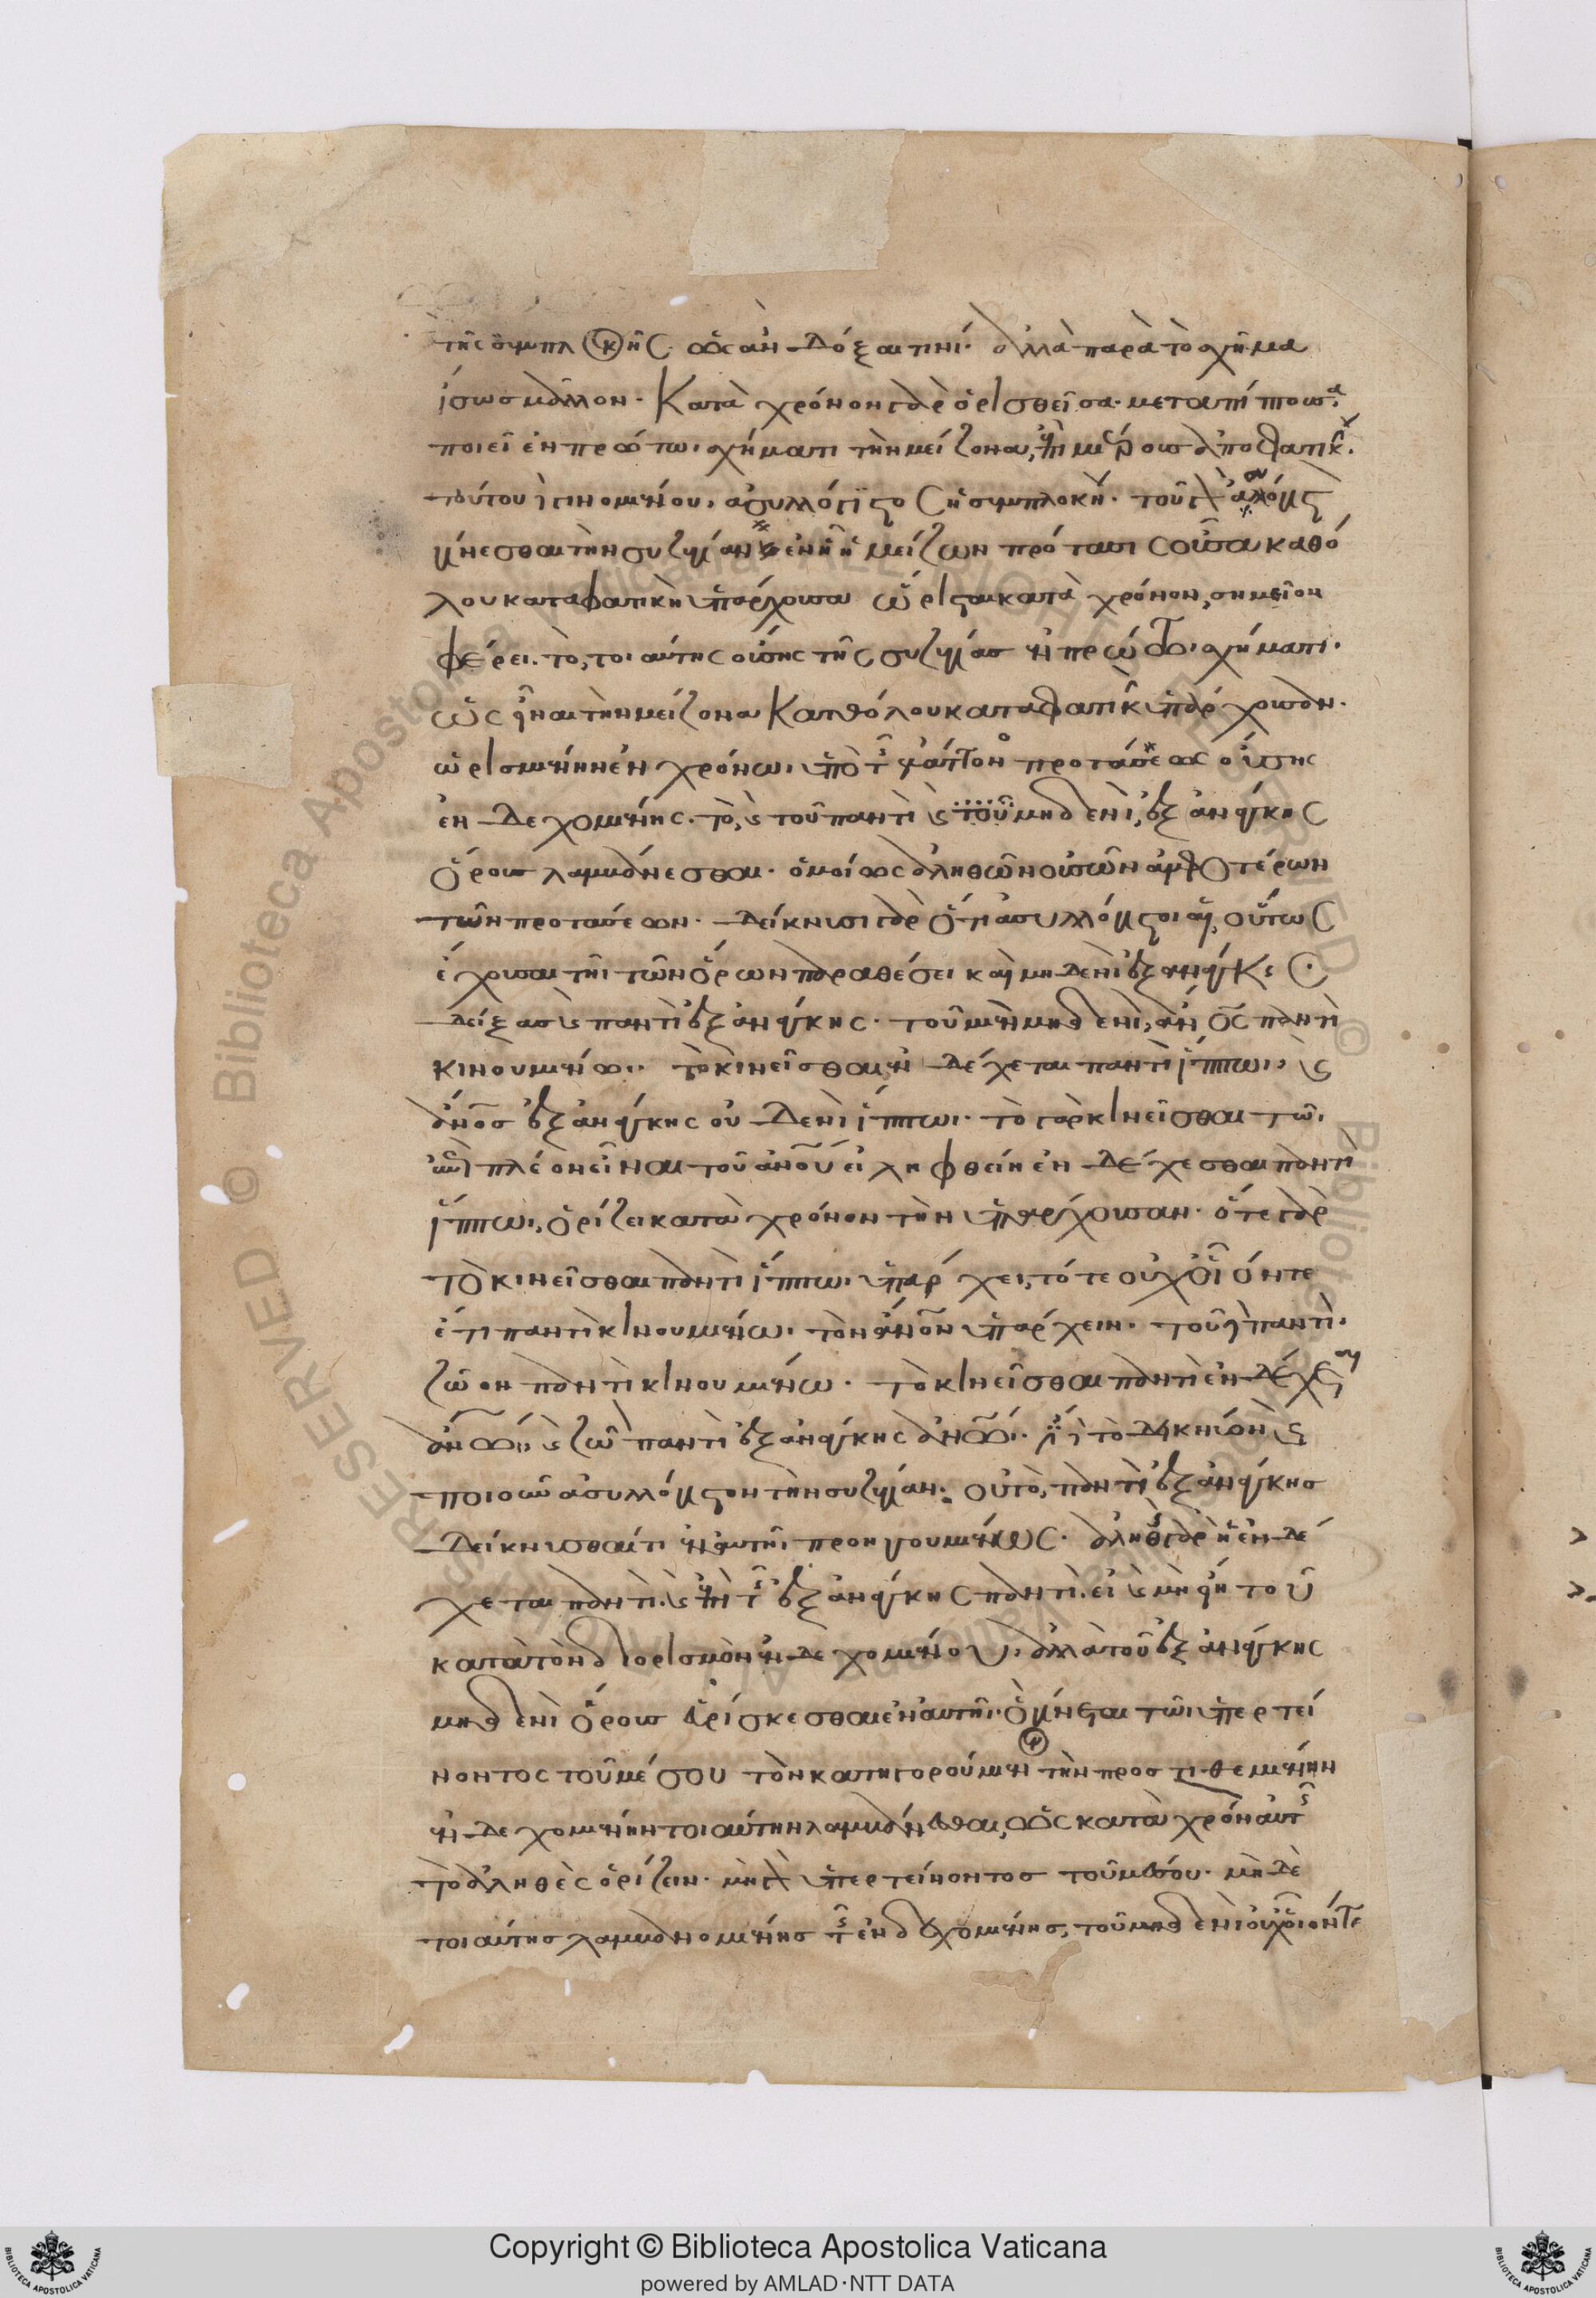 τῆς συμπλοκῆς. ὡς ἂν δόξαι τινί. ἀλλὰ παρὰ τὸ σχῆμα
ἴσως μᾶλλον. Κατὰ χρόνον γὰρ ὁρισθεῖσα. μεταπίπτουσα
ποιεῖ ἐν πρώτωι σχήματι τὴν μείζονα, ἐπὶ μέρους ἀποφατικ
τούτου γινομένου, ἀσυλλόγιστος ἡ συμπλοκή. τοῦ δὲ
γίνεσθαι τὴν συζυγίαν ἐν ἧ ἡ μείζων πρότασις οὖσα καθό
λου καταφατικὴ ὑπάρχουσα ὥρισται κατὰ χρόνον, σημεῖον
φέρει. τὸ, τοιαύτης οὔσης τῆς συζυγίας ἐν πρώτωι σχήματι.
ὡς εἶναι τὴν μείζονα Καθόλου καταφατικ ὑπάρχουσαν.
ὡρισμένην ἐν χρόνωι ὑπὸ τῆς ἐλάττονο προτάσεως οὔσης
ἐνδεχομένης. τὸ, καὶ τοῦ παντὶ καὶ τοῦ μηδενὶ, ἐξ ἀνάγκης
ὅρους λαμβάνεσθαι. ὁμοίως ἀληθῶν οὐσῶν ἀμφοτέρων
τῶν προτάσεων. δείκνυσι γὰρ ὅτι ἀσυλλόγιστοι αἱ, οὕτως
ἔχουσαι τῆι τῶν ὅρων παραθέσει καὶ μηδενὶ ἐξ ἀνάγκης.
δείξας καὶ παντὶ ἐξ ἀνάγκης. τοῦ μὲν μηδενὶ, ἂν ος παντὶ
κινουμένωι. τὸ κινεῖσθαι, ἐνδέχεται παντὶ ἵππωι, καὶ
ἄνος ἐξ ἀνάγκης οὐδενὶ ἵππωι. τὸ γὰρ κινεῖσθαι τῶι
ἐπὶ πλέον εἶναι τοῦ ανου εἰληφθείη ἐνδέχεσθαι παντὶ
ἵππωι, ὁρίζει κατὰ χρόνον τὴν ὑπάρχουσαν. ὅτε γὰρ
τὸ κινεῖσθαι παντὶ ἵππωι ὑπάρχει, τότε οὐχ οἷόν τε
ἔτι παντὶ κινουμένω. τὸν ἄνον ὑπάρχειν. τοῦ δὲ παντὶ.
ζῶον παντὶ κινουμένω. τὸ κινεῖσθαι παντὶ ἐνδέχεται
ἀνωι, καὶ ζῶ παντὶ ἐξ ἀνάγκης ἀνωι.
ποιοῦν ἀσυλλόγιστον τὴν συζυγίαν. οὐ τὸ, παντὶ ἐξ ἀνάγκης
δείκνυσθαί τι ἐν αὐτῆι προηγουμένως. ἀληθὴς γὰρ ἡ ἐνδέ
χεται παντὶ. καὶ ἐπὶ τῆς ἐξ ἀνάγκης παντὶ. εἰ καὶ μὴ εἴη τοῦ
κατὰ τὸν διορισμὸν ἐνδεχομένου, ἀλλὰ τοῦ ἐξ ἀνάγκης
μηδενὶ ὅρους εὑρίσκεσθαι ἐν αὐτῆι. ὃ γίνεται τῶι ὑπερτεί
νοντος τοῦ μέσου τὸν κατηγορούμενον τὴν προστιθεμένην
ἐνδεχομένην τοιαύτην λαμβάνεσθαι, ὡς κατὰ χρόν αὐτῆς
τὸ ἀληθὲς ὁρίζειν. μὴ δὲ ὑπερτείνοντος τοῦ μέσου. μηδὲ
τοιαύτης λαμβανομένης τῆς ἐνδεχομένης, τοῦ μηδενὶ οὐχ οἷόν τε